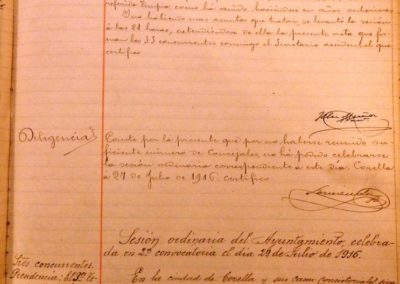 referido Grupo como há venido haciendo en años anteriores
Y no habiendo mas asuntos que tratar, se levantó la sesión
á las 21 horas, extendiendose de ella la presente acta que fir-
man los SS concurrentes conmigo el Secretario accidental que
certifico
Diligencia
Conste por la presente que por no haberse reunido su
ficiente número de Concejales, no há podido celebrarse
la sesión ordinaria correspondiente á este día. Corella
á 27 de Julio de 1916. certifico
Sesión ordinaria del Ayuntamiento, celebra-
da en 2ª convocatoria el día 29 de Julio de 1916.
Sres concurrentes
Presidencia: El Sr.
En la ciudad de Corella y sus Casas consistoriales